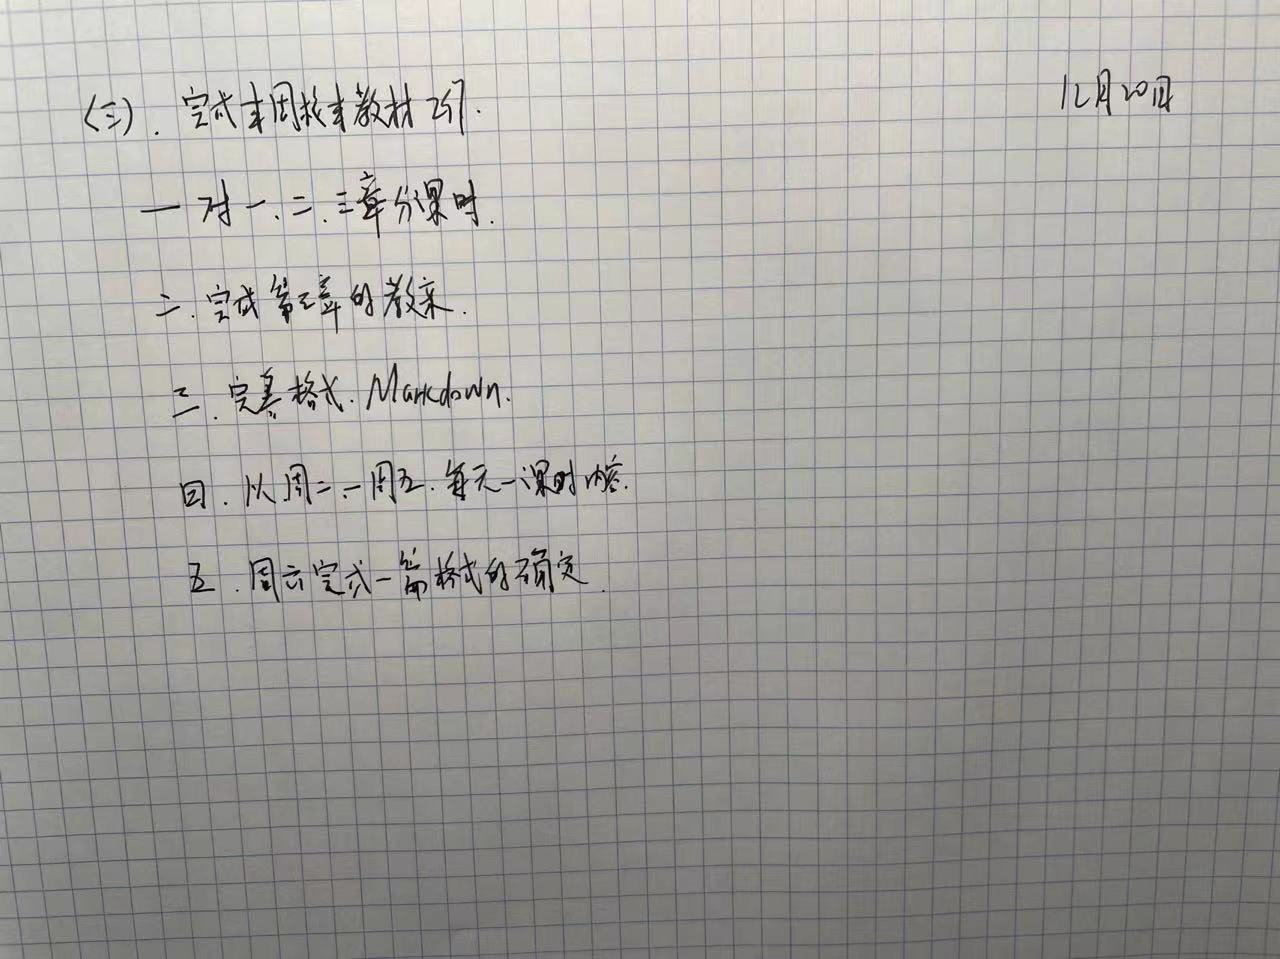 12月20日
(三). 完成本周校本教材
一 对一、二、三章分课时.
二. 完成第三章的教案.
三. 完善格式. Markdown.
四. 从周二.一周五. 每天一课时内容.
五. 周六完成一篇格式的确定.